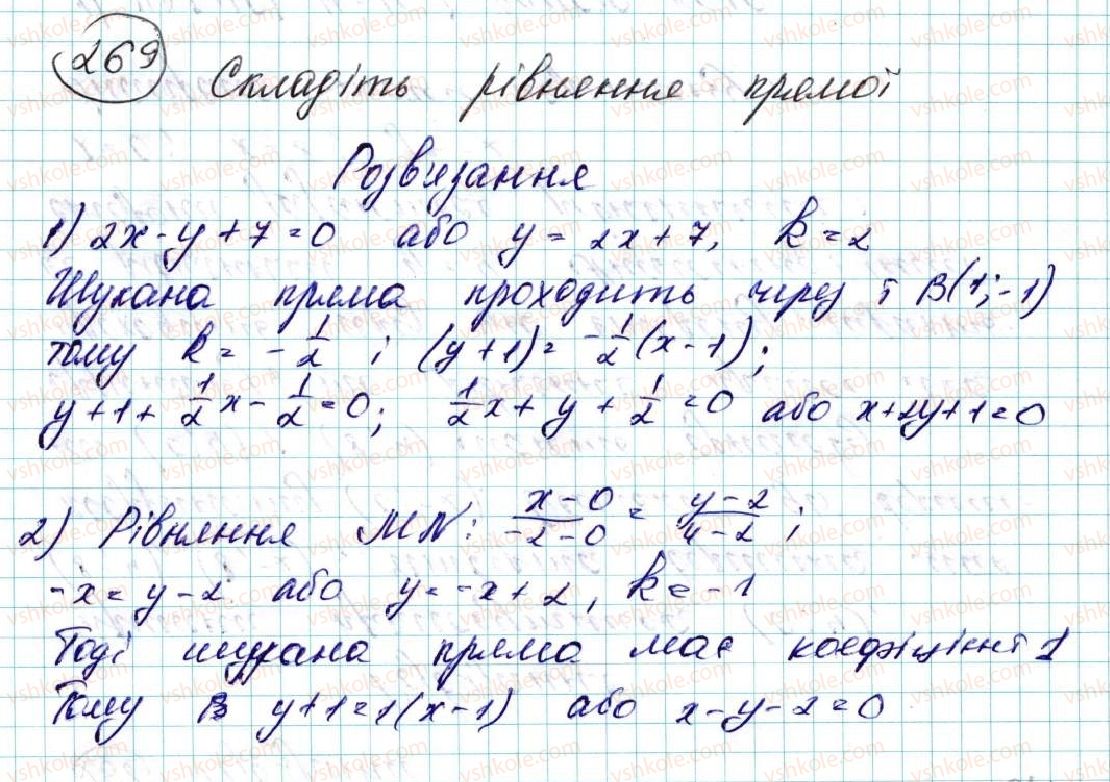 269 Складіть рівняння прямої
Розв'язання
1) 2x-y+7=0 або y=2x+7, k=2
Шукана пряма проходить через т B(1;-1)
тому k= -1/2 і (y+1)= -1/2(x-1);
y+1+1/2x-1/2=0; 1/2x+y+1/2=0 або x+2y+1=0
2) Рівняння MN: x-0/-2-0 = y-2/4-2;
-x=y-2 або y=-x+2, k=-1
Тоді шукана пряма має коефіцієнт 1
Тому B y+1=1(x-1) або x-y-2=0